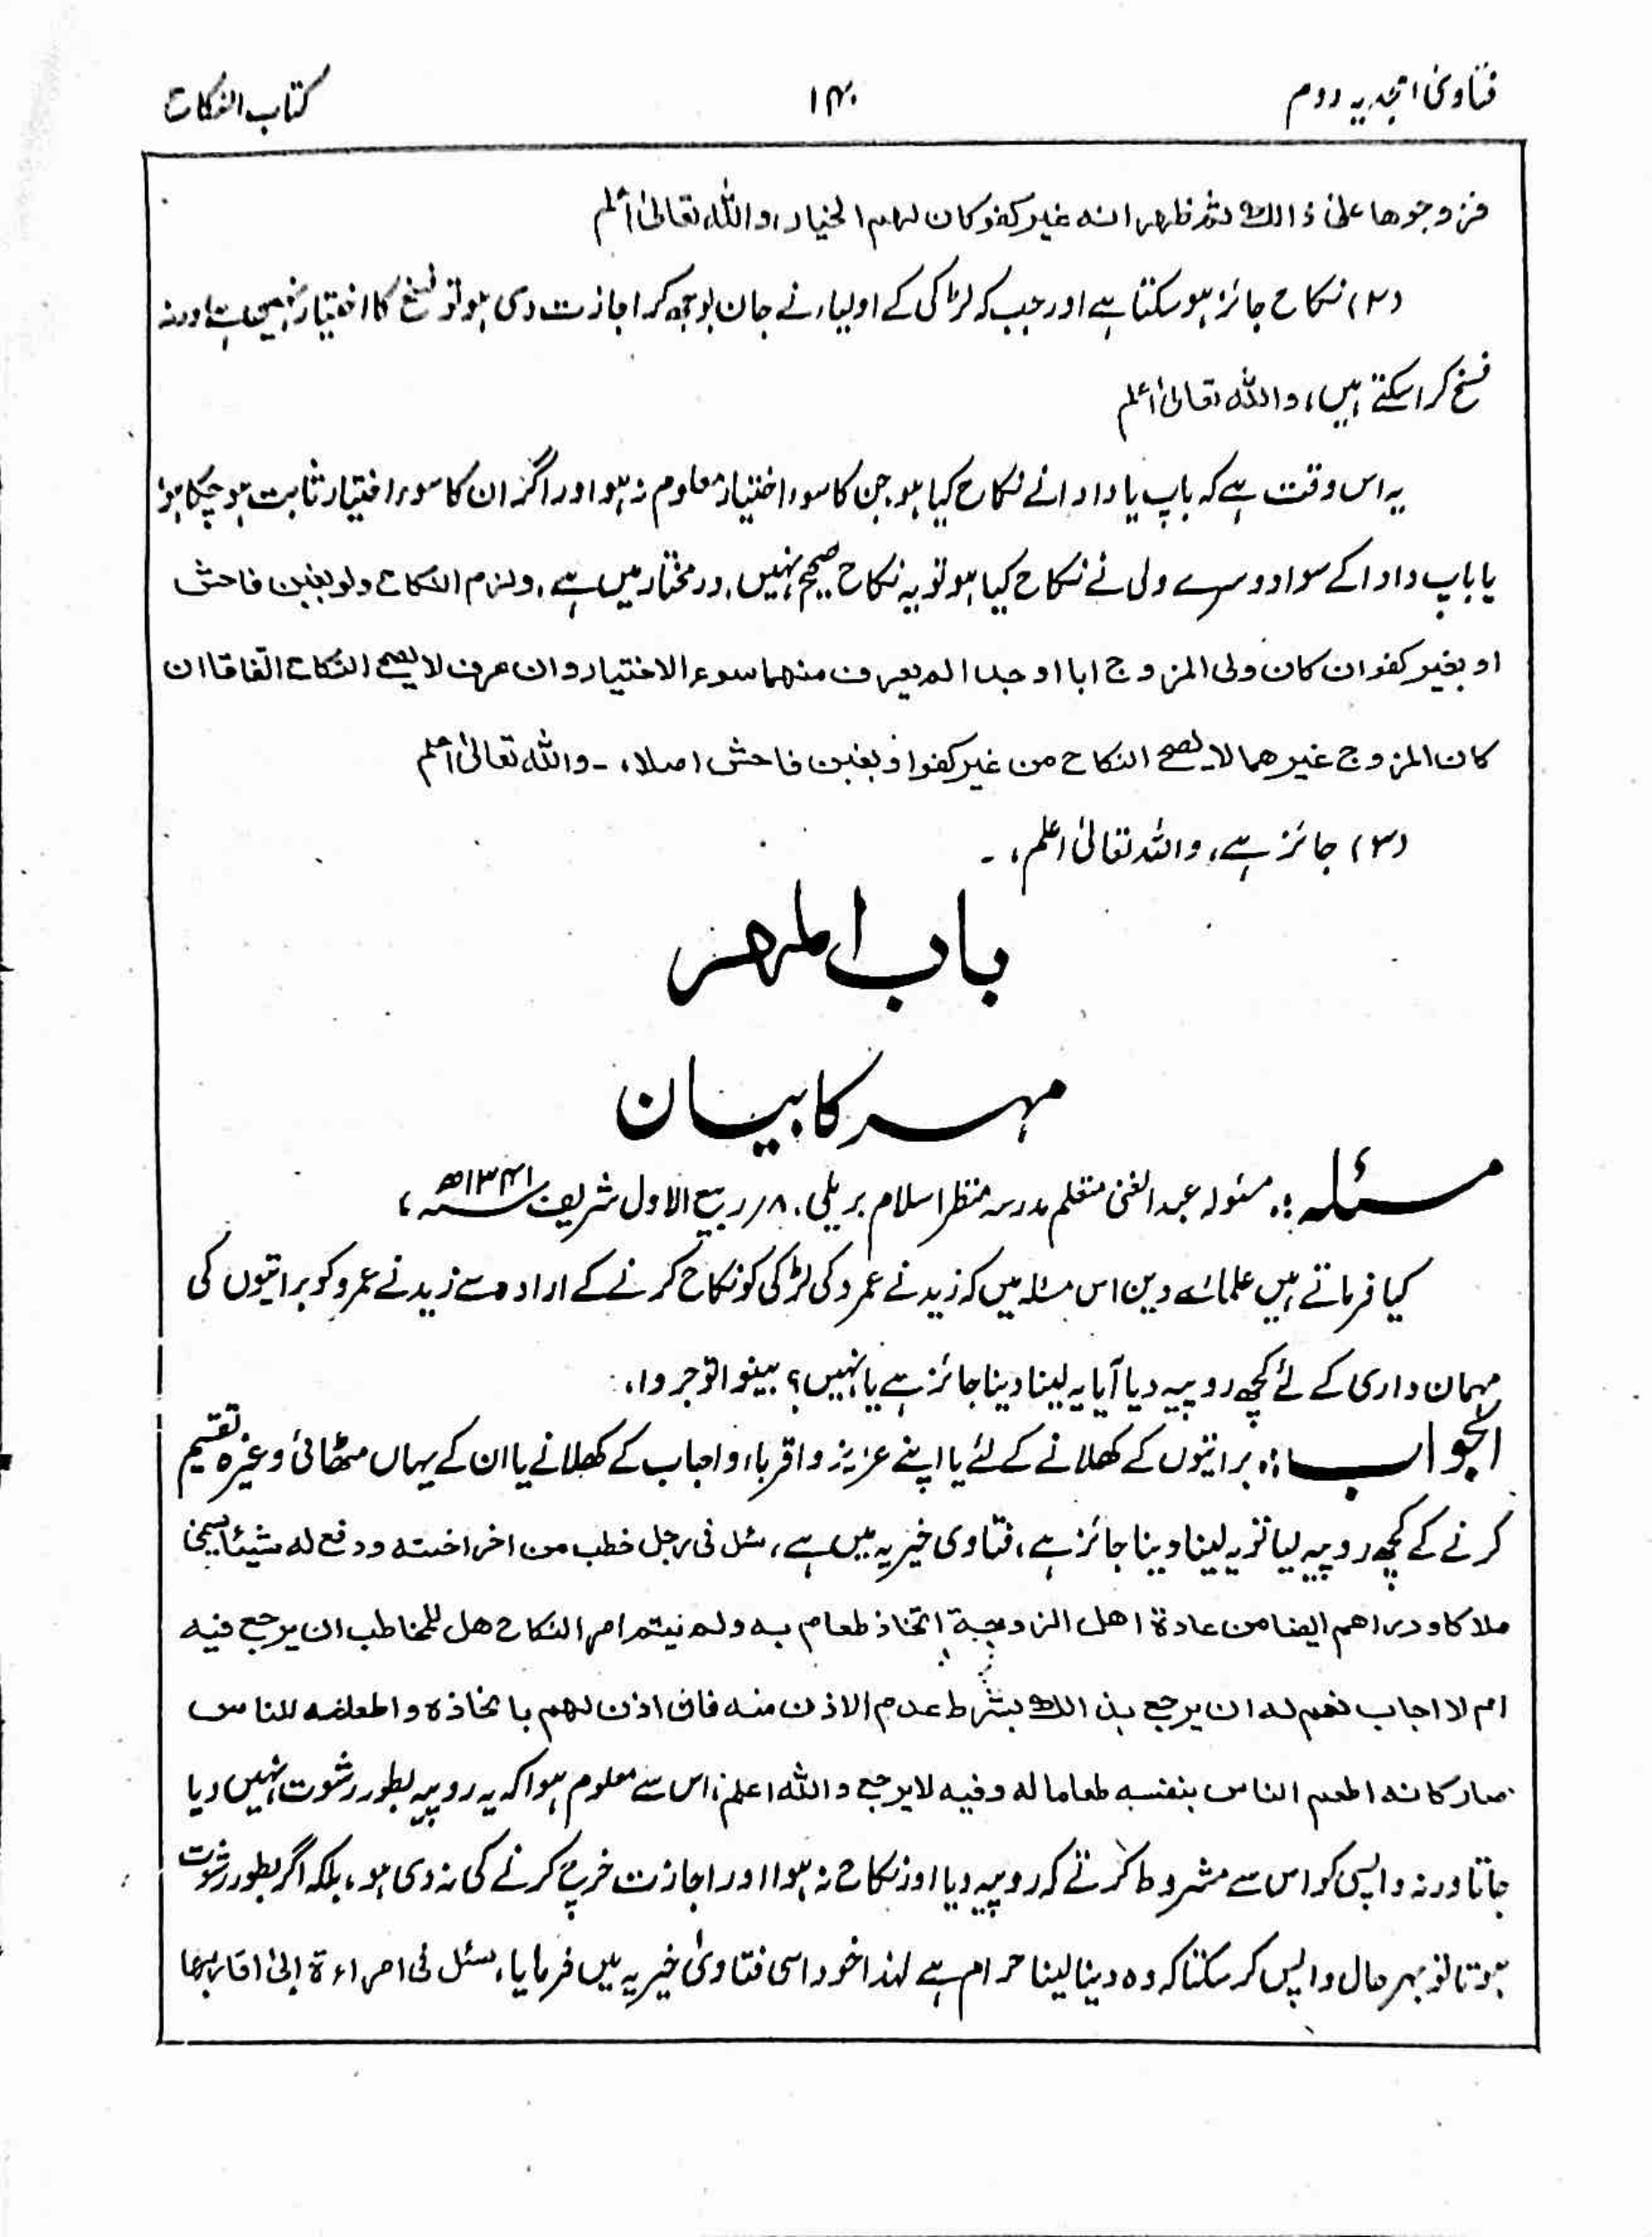 فتاویٰ امجدیہ دوم
۱۴۰
کتاب النکاح
فزوجوها علیٰ ذالك ثم ظهر انه غیر کفو کان لهم الخیار، واللہ تعالیٰ اعلم
(۲) نکاح جائز ہو سکتا ہے اور جب کہ لڑکی کے اولیاء نے جان بوجھ کر اجازت دی ہو تو فسخ کا اختیار نہیں ہے اور نہ
فسخ کرا سکتے ہیں، واللہ تعالیٰ اعلم
یہ اس وقت ہے کہ باپ یا دادا نے نکاح کیا ہو جن کا سوء اختیار معلوم نہ ہو اور اگر ان کا سوء اختیار ثابت ہو چکا ہو
یا باپ دادا کے سوا دوسرے ولی نے نکاح کیا ہو تو یہ نکاح صحیح نہیں، درمختار میں ہے، ولزم النکاح ولو بغبن فاحش
او بغیر کفو ان کان ولی المزوج ابا او جدا لم یعرف منهما سوء الاختیار وان عرف لا یصح النکاح اتفاقا ان
کان المزوج غیرهما لا یصح النکاح من غیر کفو او بغبن فاحش اصلا، - واللہ تعالیٰ اعلم
(۳) جائز ہے، واللہ تعالیٰ اعلم، -
باب المهر
مہر کا بیان
مسئلہ:۔ مسئولہ عبد الغنی متعلم مدرسہ منظر اسلام بریلی، ۸/ ربیع الاول شریف سنہ ۱۳۴۱ھ،
کیا فرماتے ہیں علمائے دین اس مسئلہ میں کہ زید نے عمرو کی لڑکی کو نکاح کرنے کے ارادہ سے زید نے عمرو کو براتیوں کی
مہمان داری کے لئے کچھ روپیہ دیا آیا یہ لینا دینا جائز ہے یا نہیں؟ بینوا توجروا،
الجواب:۔ براتیوں کے کھلانے کے لئے یا اپنے عزیز و اقرباء و احباب کے کھلانے یا ان کے یہاں مٹھائی وغیرہ تقسیم
کرنے کے کچھ روپیہ لیا تو یہ لینا دینا جائز ہے، فتاوی خیریہ میں ہے، سئل فی رجل خطب من اخر اخته ودفع له شیئا یسمی
ملاکا ودراهم ایضا من عادة اهل الزوجة اتخاذ طعام به ولم یتم امر النکاح هل للخاطب ان یرجع فیه
ام لا اجاب نعم له ان یرجع بذالك بشرط عدم الاذن منه فان اذن لهم باتخاذه واطعامه للناس
صار کانه اطعم الناس بنفسه طعاما له وفیه لا یرجع واللہ اعلم، اس سے معلوم ہوا کہ یہ روپیہ بطور رشوت نہیں دیا
جاتا ورنہ واپسی کو اس سے مشروط کرتے کہ روپیہ دیا اور نکاح نہ ہوا اور اجازت خرچ کرنے کی نہ دی ہو، بلکہ اگر بطور رشوت
ہوتا تو بہر حال واپس کر سکتا کہ وہ دینا لینا حرام ہے لہذا خود اسی فتاویٰ خیریہ میں فرمایا، سئل فی امراءة ابیٰ اقاربها